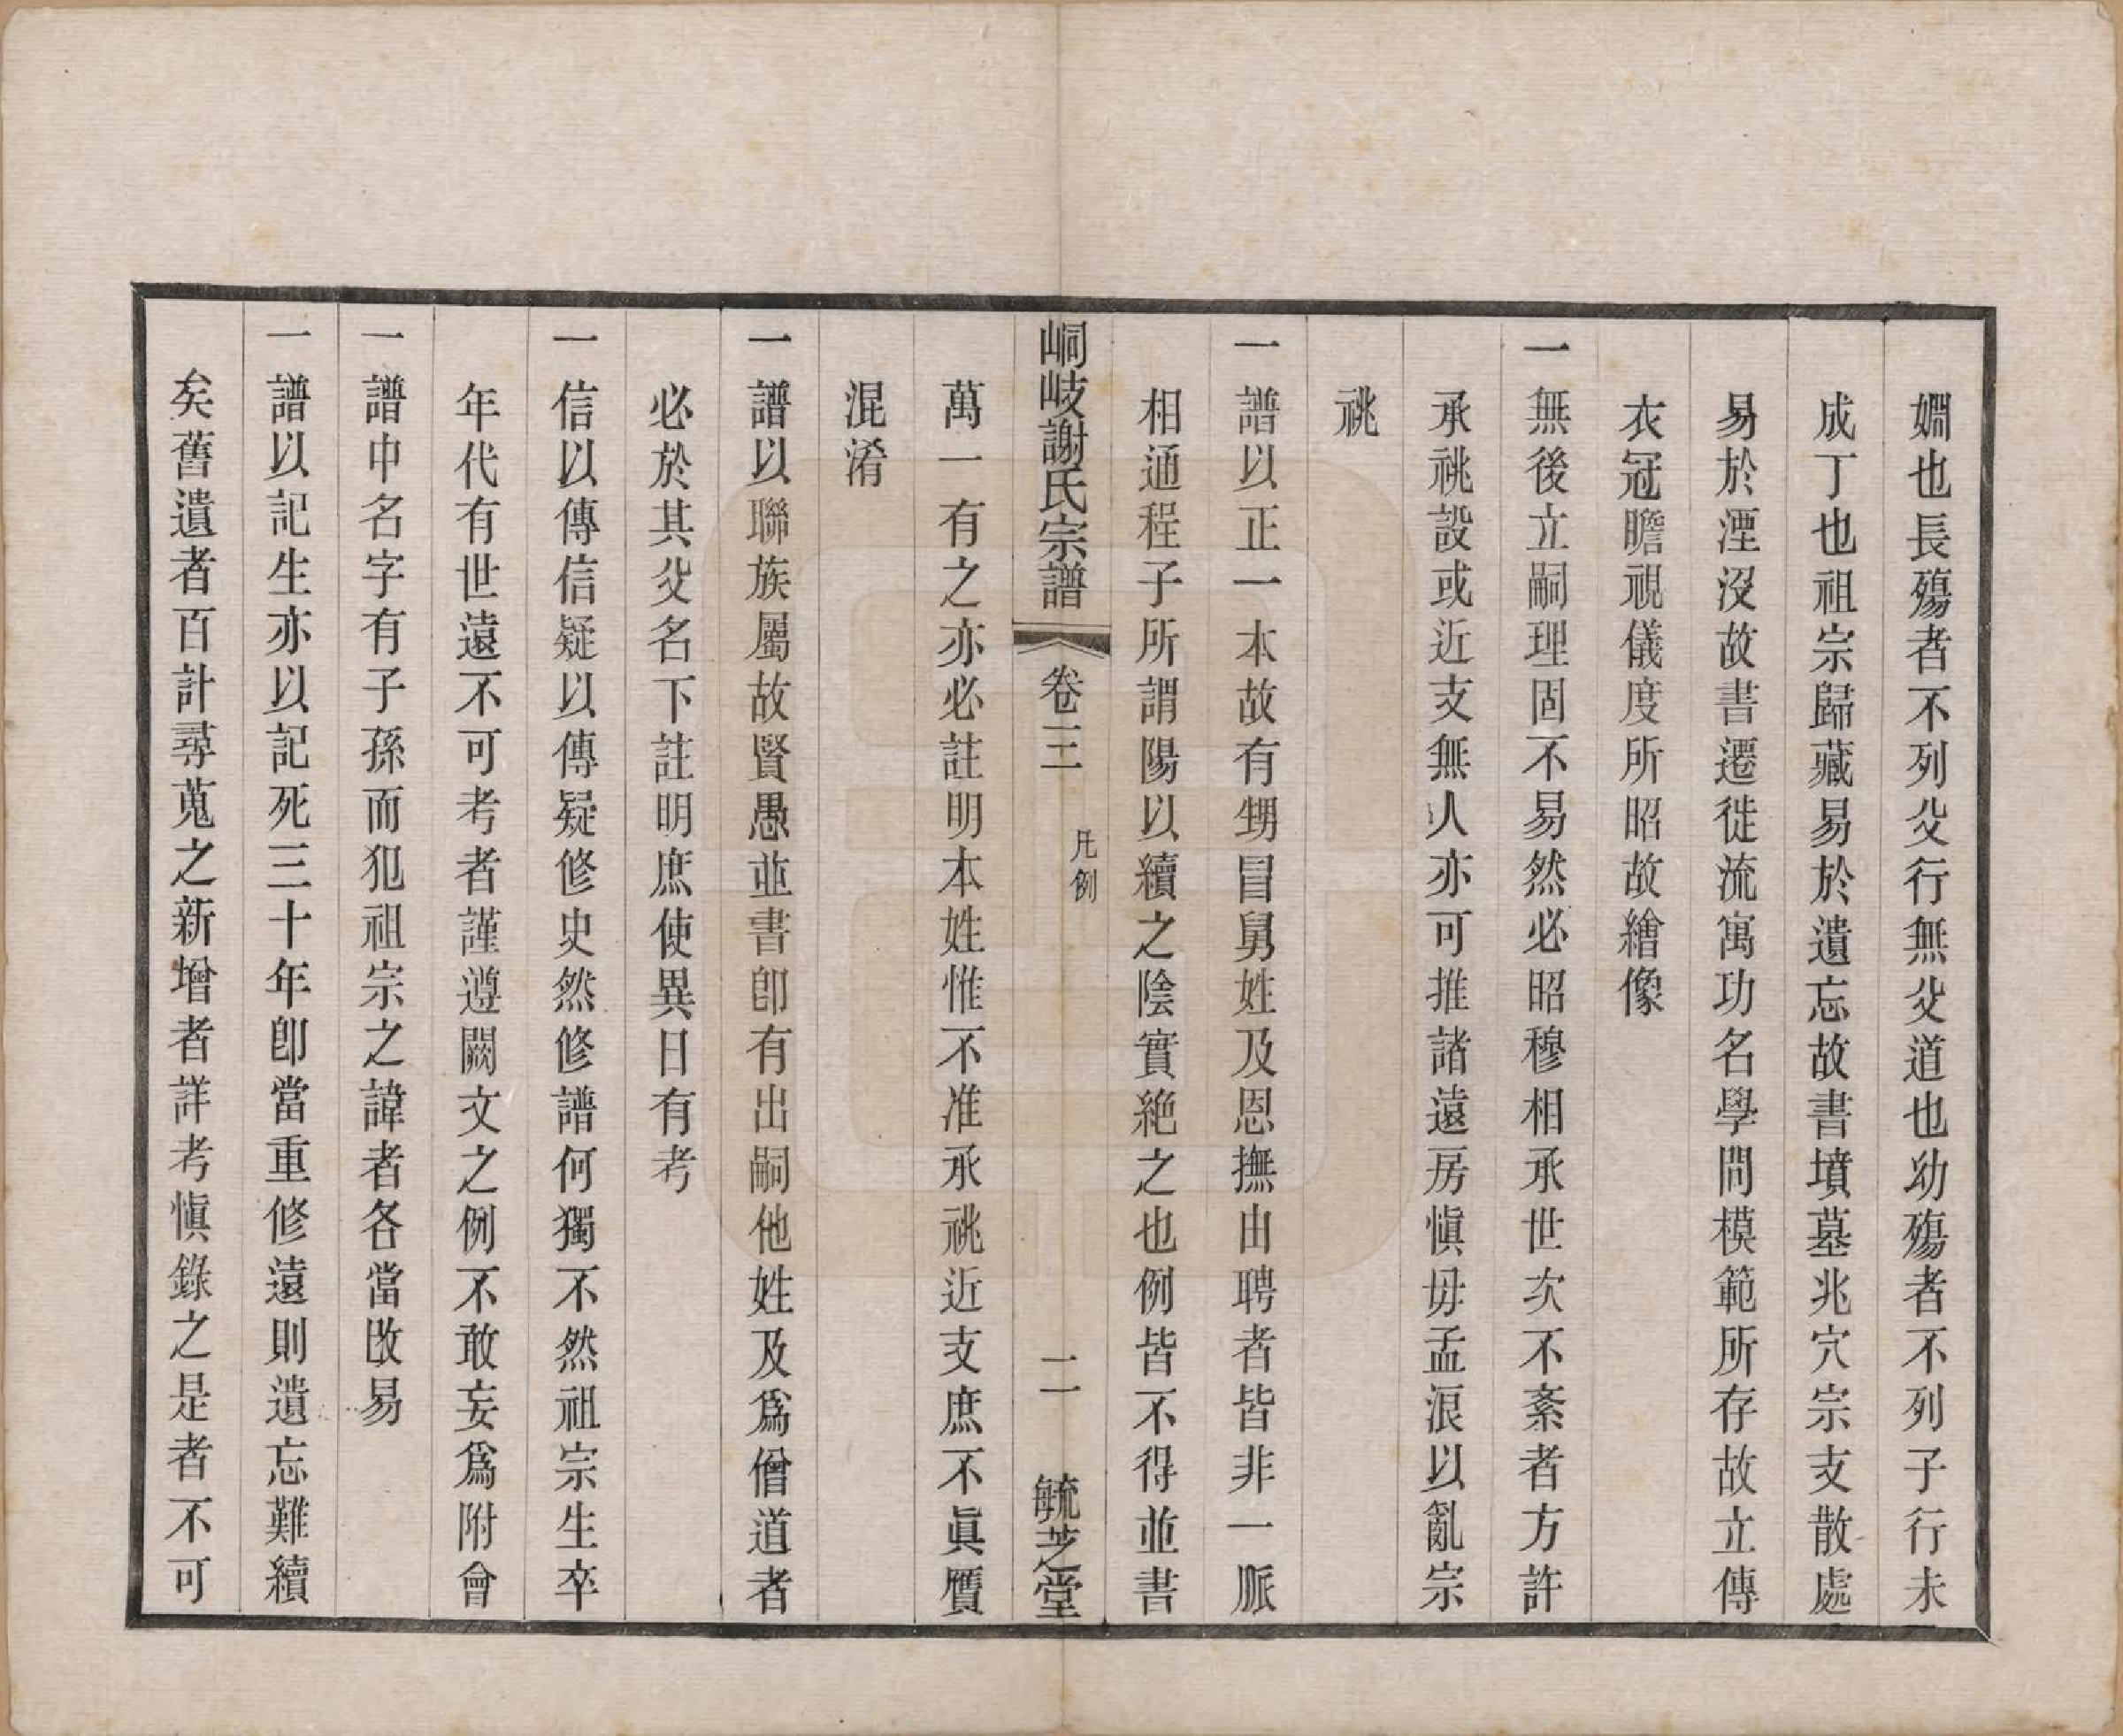 嫺也長殤者不列父行無父道也幼殤者不列子行未
成丁也祖宗歸藏易於遺忘故書墳墓兆穴宗支散處
易於湮沒故書遷徙流寓功名學問模範所存故立傳
衣冠瞻視儀度所昭故繪像
一無後立嗣理固不易然必昭穆相承世次不紊者方許
承祧設或近支無人亦可推諸遠房愼毋孟浪以亂宗
祧
一譜以正一本故有甥冒舅姓及恩撫由聘者皆非一脈
相通程子所謂陽以續之陰實絶之也例皆不得並書
峒岐謝氏宗譜 卷三 凡例 二 毓芝堂
萬一有之亦必註明本姓惟不准承祧近支庶不眞贗
混淆
一譜以聯族屬故賢愚並書卽有出嗣他姓及爲僧道者
必於其父名下註明庶使異日有考
一信以傳信疑以傳疑修史然修譜何獨不然祖宗生卒
年代有世遠不可考者謹遵闕文之例不敢妄爲附會
一譜中名字有子孫而犯祖宗之諱者各當改易
一譜以記生亦以記死三十年卽當重修遠則遺忘難續
矣舊遺者百計尋蒐之新增者詳考愼錄之是者不可